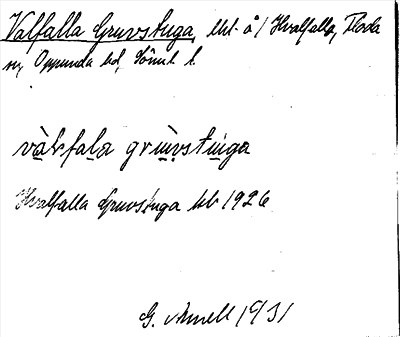 Valfalla Gruvstuga, lht. å / Hvalfalla, Floda
sn, Oppunda hd, Söml. l.
vàlsfala grùvstuga
Hvalfalla Gruvstuga kb 1926
G. Arnell 1931